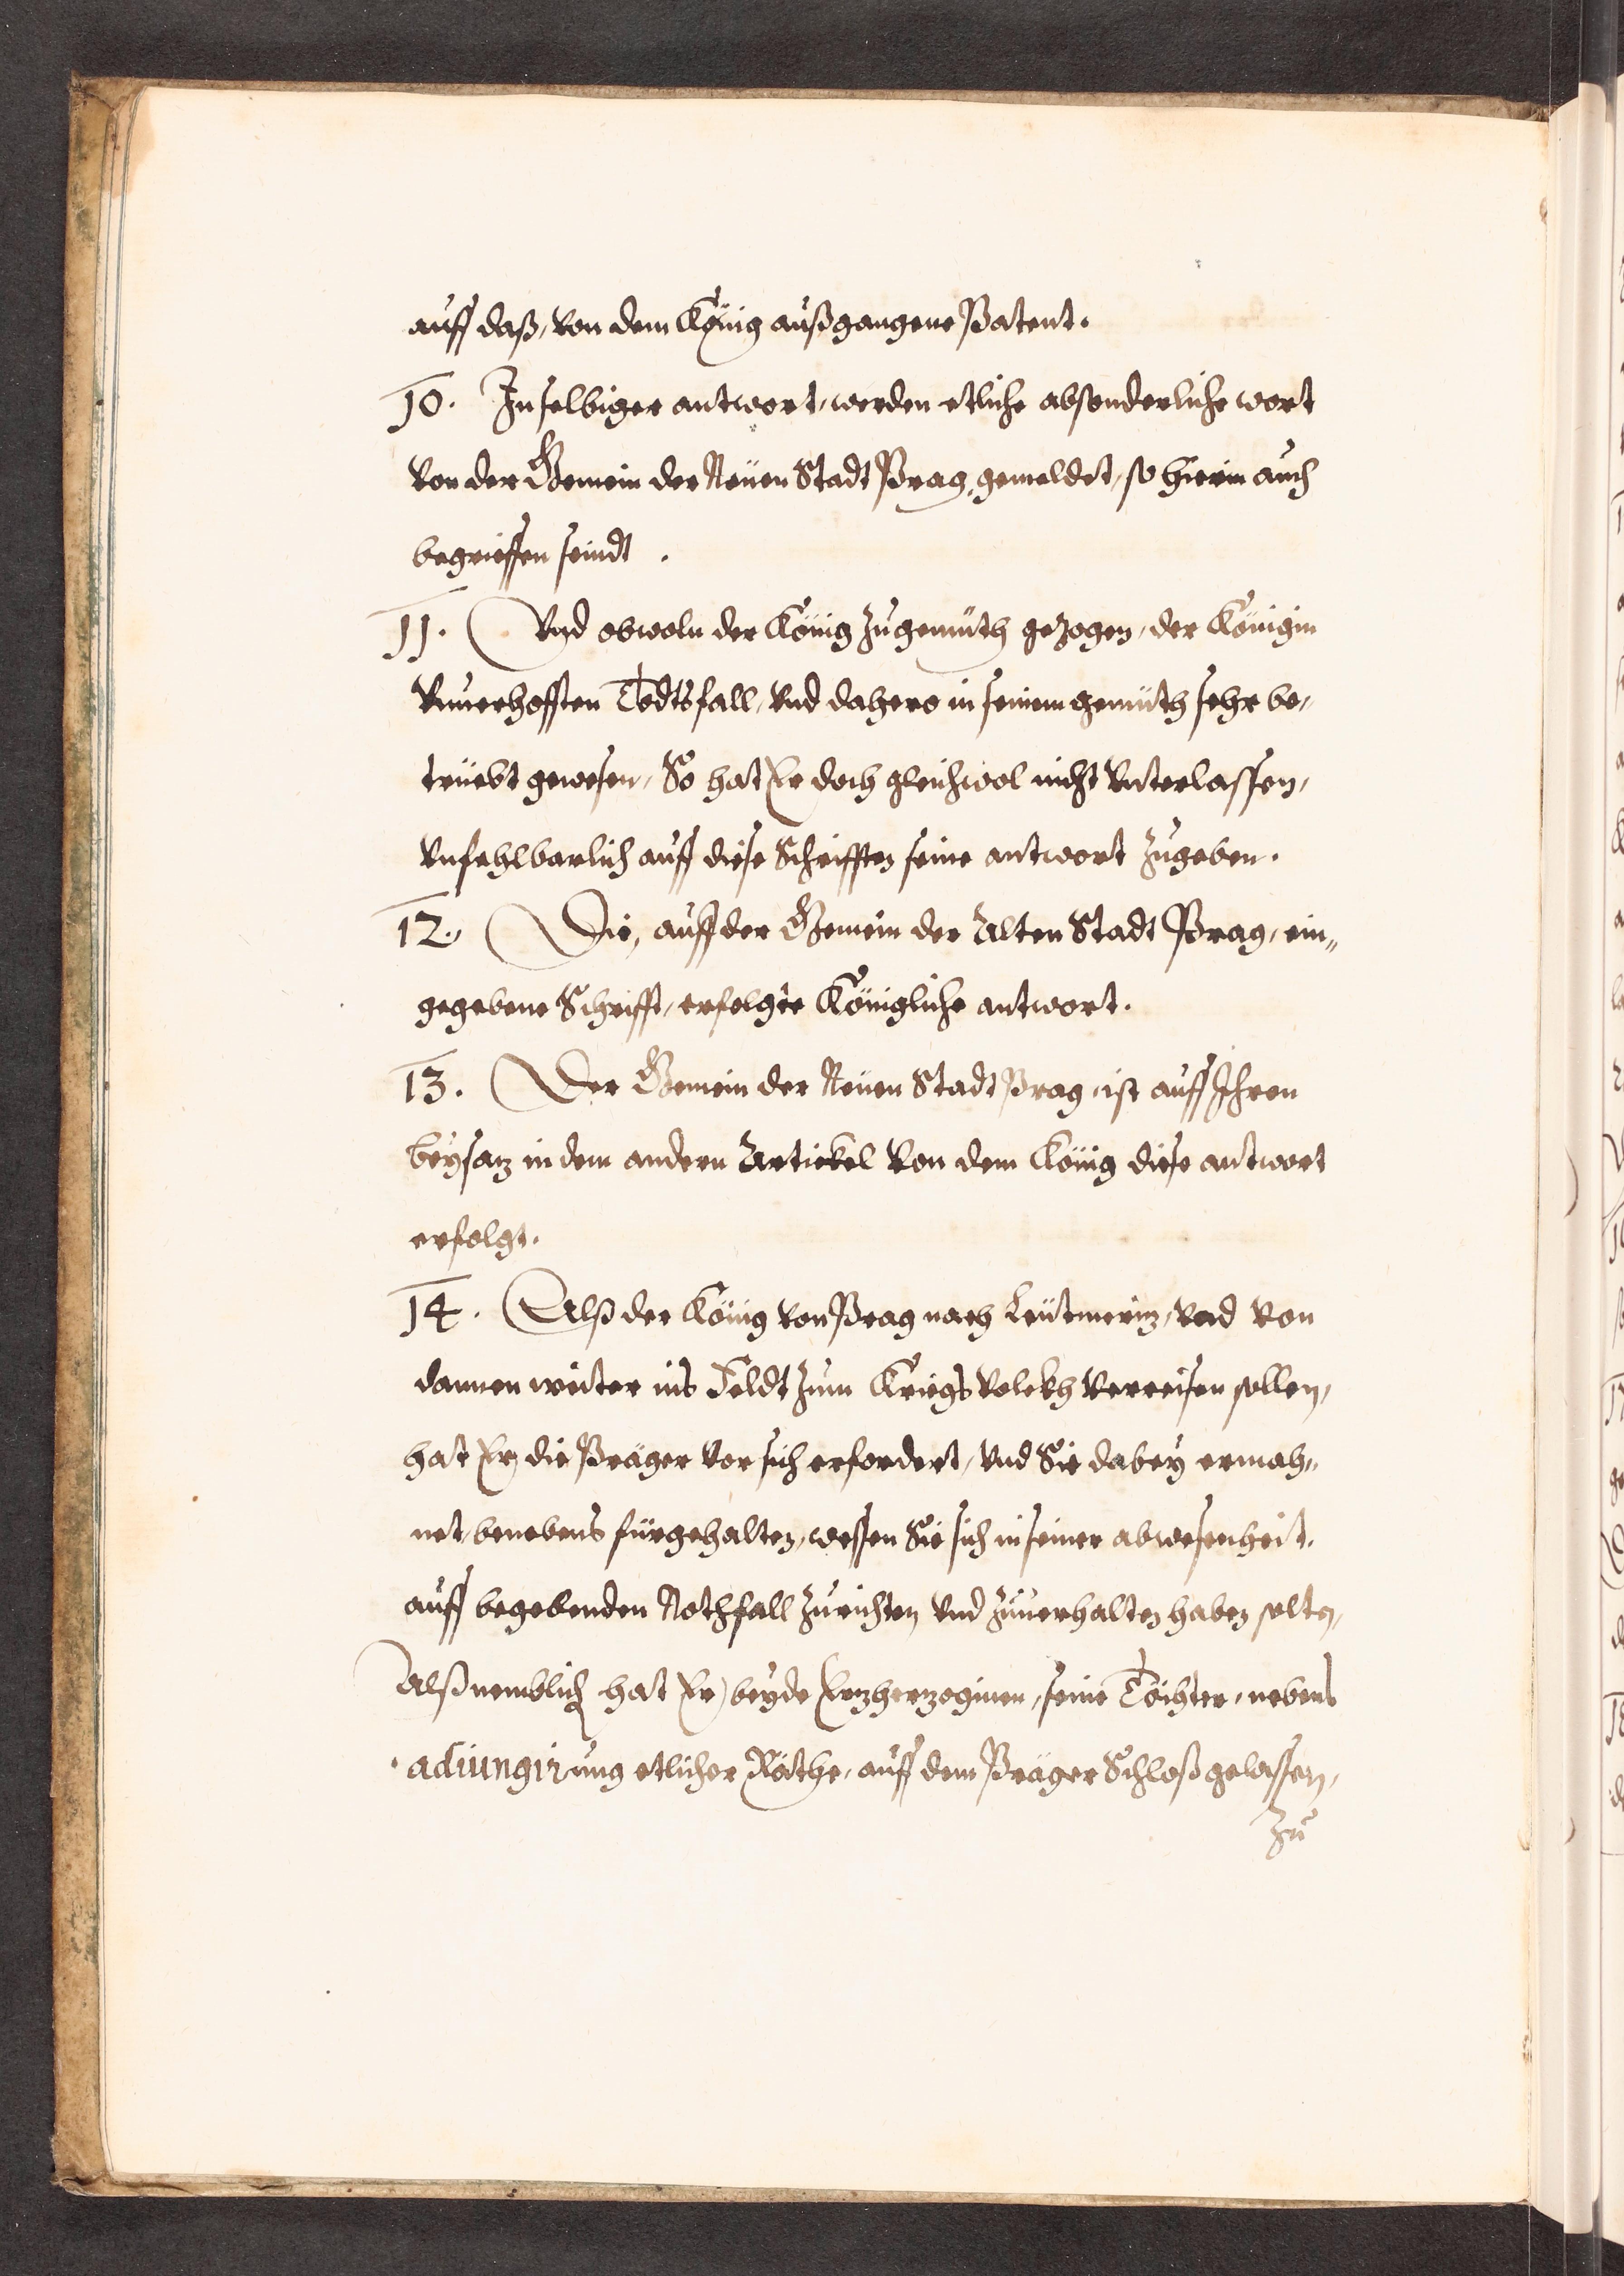 auff daß, von dem König außgangene Patent.
10. In selbiger antwort, werden etliche absonderliche wort
von der Gemein der Neuen Stadt Prag, gemeldet, so hierin auch
begrieffen seindt.
11. Vnd obwoln der König zugemüth gezogen, der Königin
vnuerhofften Todtsfall, vnd dahero in seinem gemüth sehr be,
trüebt gewesen, So hat Er doch gleichwol nicht vnterlassen,
vnfehlbarlich auff diese Schrifften seine antwort zugeben.
12. Die, auff der Gemein der Alten Stadt Prag, ein„
gegebene Schrifft, erfolgte Königliche antwort.
13. Der Gemein der Neuen Stadt Prag, ist auff Ihren
beysatz in dem andern Artickel von dem König diese antwort
erfolgt.
14. Alß der König von Prag nach Leutmeritz, vnd von
dannen weiter ins Feldt zum Kriegs volckh verreisen sollen,
hat Er die Präger vor sich erfordert, vnd Sie dabey ermah„
net, benebens fürgehalten, wessen Sie sich in seiner abwesenheit.
auff begebenden Nothfall zurichten vnd zuuerhalten haben solten,
Alß nemblich hat Er beyde Ertzhertzoginen, seine Töchter, nebens
adiungirung etlicher Räthe, auff dem Präger Schloß gelassen,
zu